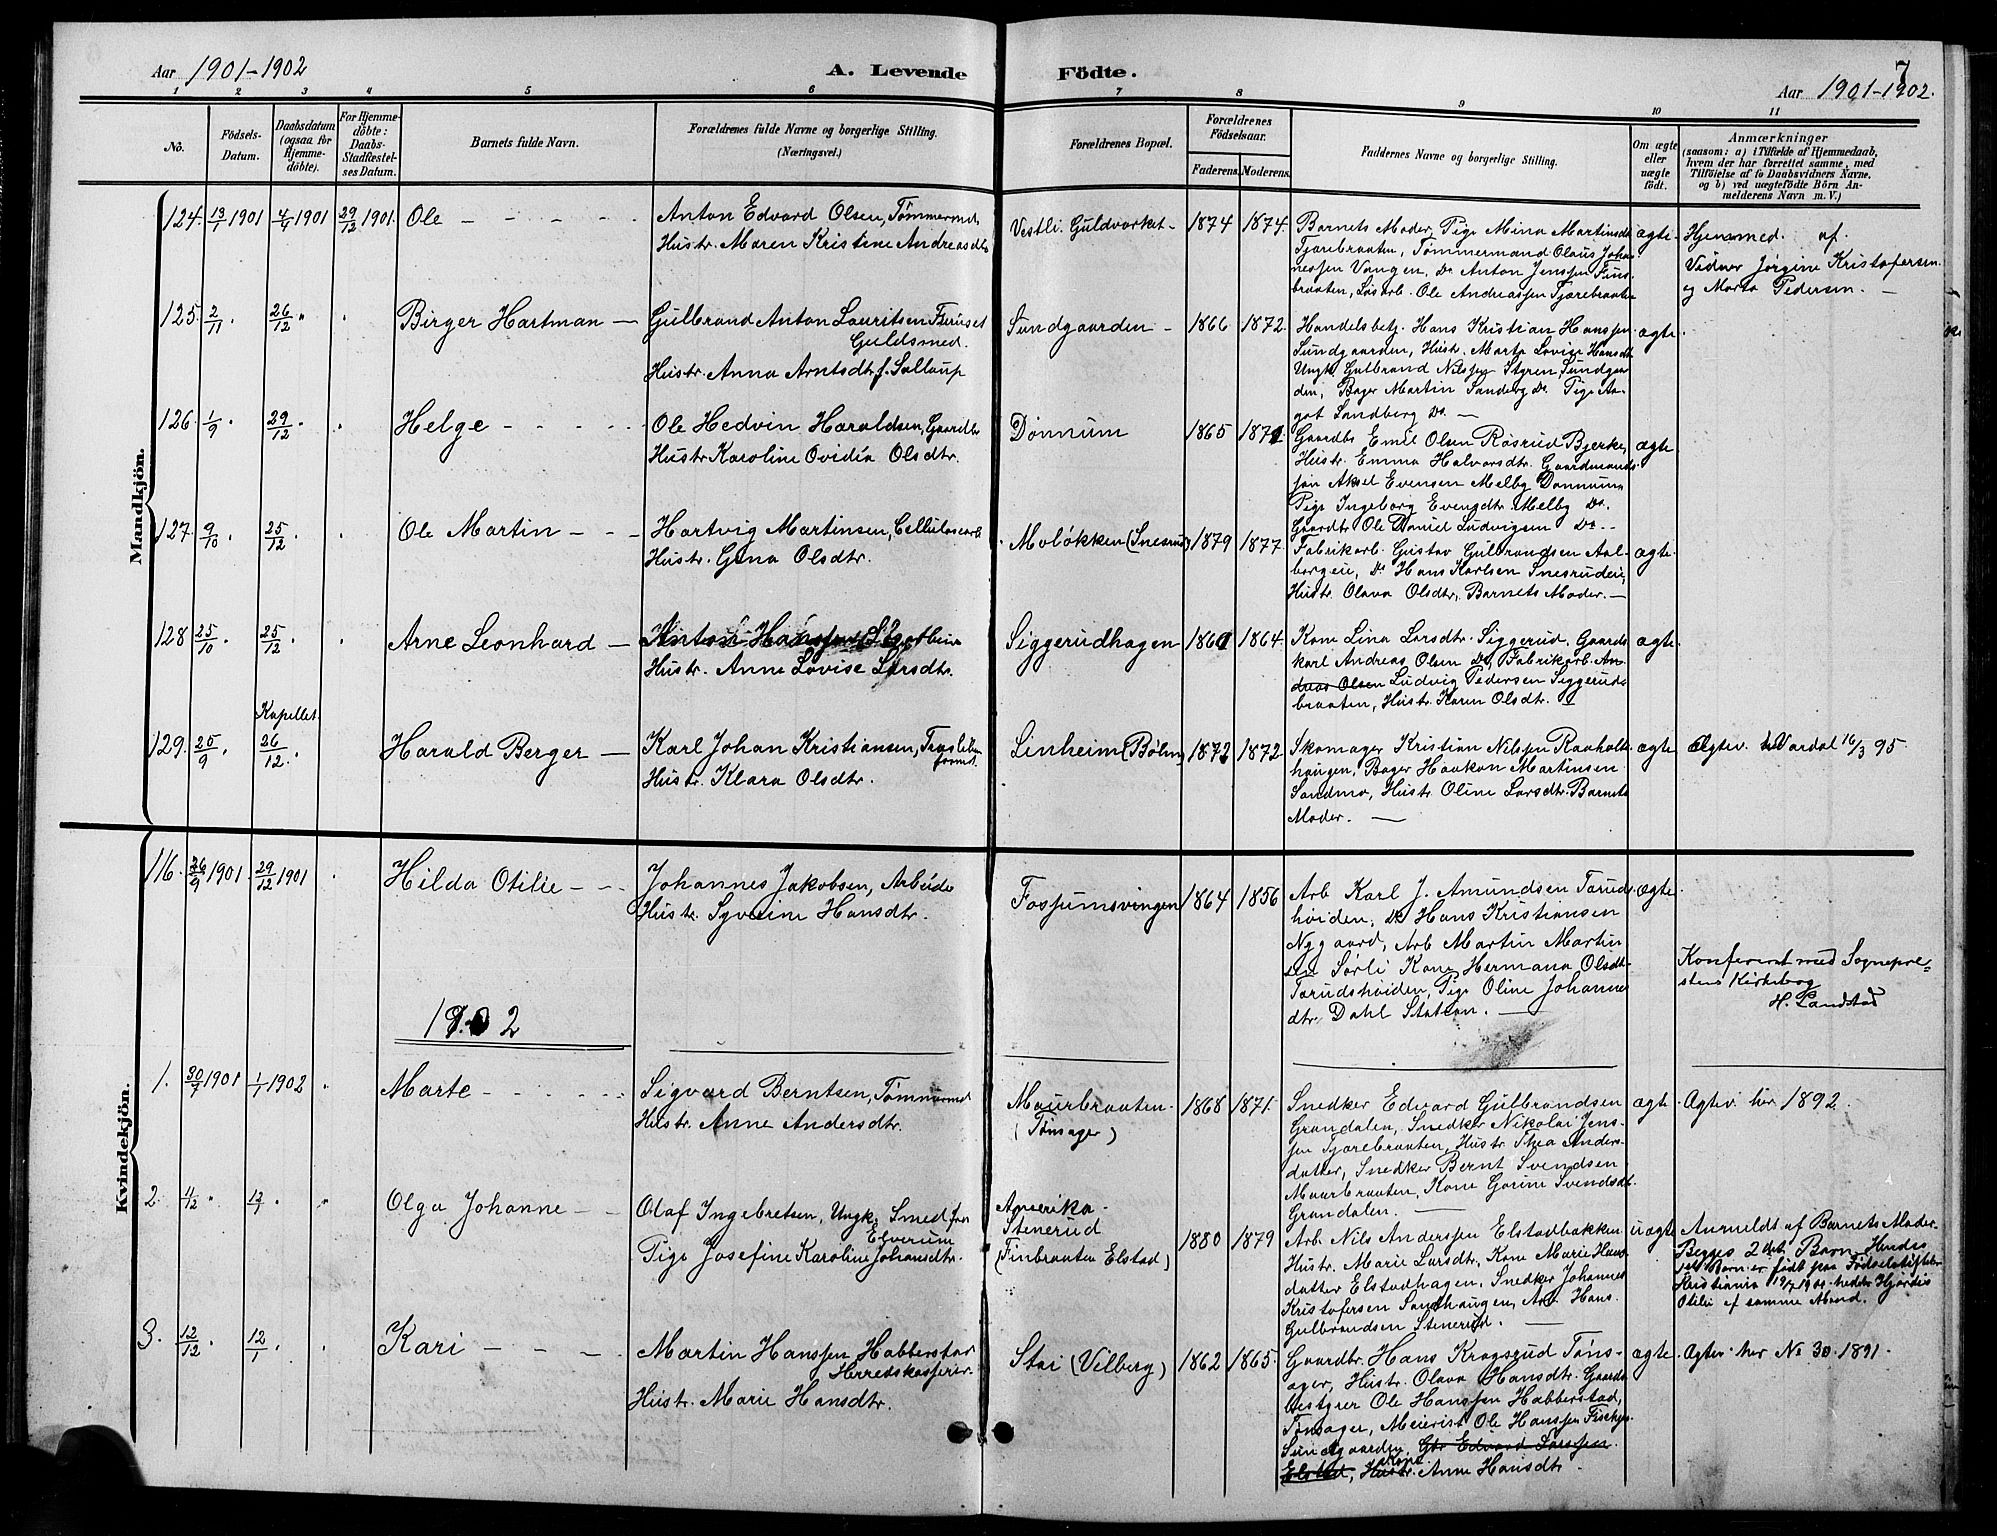 Aar 1901-1902
A. Levende Födte.
7
Aar 1901-1902.
1 2 3 4 5 6 7 8 9 10 11
No.
Födsels-
Datum.
Daabsdatum
(ogsaa for
Hjemme-
döbte).
For Hjemme-
döbte:
Daabs-
Stadfæstel-
ses Datum.
Barnets fulde Navn.
Forældrenes fulde Navne og borgerlige Stilling.
(Næringsvei.)
Forældrenes Bopæl.
Forældrenes
Födselsaar.
Faderens. Moderens.
Faddernes Navne og borgerlige Stilling.
Om ægte
eller
uægte
födt.
Anmærkninger
(saasom: a) i Tilfælde af Hjemmedaab,
hvem der har forrettet samme, med
Tilföielse af to Daabsvidners Navne,
og b) ved uægtefödte Börn An-
melderens Navn m. V.)
Mandkjön.
124. 13/1 1901 4/4 1901 29/12 1901. Ole
Anton Edvard Olsen, Tømmermd
Hustr. Maren Kristine Andreasdtr
Vestli. Guldværket 1874 1874.
Barnets Moder, Pige Mina Martinsdtr
Tjærebraaten, Tømmermand Olaus Johan-
nessen Vangen, Do Anton Jenssen Fins-
braaten, Løsarb. Ole Andreassen Tjærebraaten
ægte
Hjemmed. af
Vidner Jørgine Kristofersen
og Marta Pedersen.
125. 2/11 26/12 Birger Hartman
Gulbrand Anton Lauritsen Furuset
Guldsmed.
Hustr. Anna Arntsdtr f. Sollaup
Sundgaarden 1866 1872.
Handelsbetj. Hans Kristian Hanssen
Sundgaarden, Hustr. Marte Lovise Hansdtr
Ungk. Gulbrand Nilssen Styren Sundgaar
den, Bager Martin Sandberg Do. Pige Aa-
got Sandberg Do.
ægte
126. 1/9 29/12 Helge
Ole Hedvin Haraldsen, Gaardbr
Hustr Karoline Ovidia Olsdtr.
Dønnum 1865 1871.
Gaardbr Emil Olsen Røsrud Bjerke,
Hustr. Emma Halvorsdtr. Gaardmands-
søn Aksel Evensen Melby Dønnum
Pige Ingeborg Evensdtr Melby Do.
Gaardbr Ole Daniel Ludvigsen Do.
ægte
127. 9/10 25/12 Ole Martin
Hartvig Martinsen, Cellulosearb
Hustr. Gina Olsdtr.
Moløkken (Snesrud) 1879 1877.
Fabrikarb. Gustav Gulbrandsen Aal-
borgeie, Do Hans Karlsen Snesrudeie,
Hustr. Olava Olsdtr, Barnets Moder.
ægte
128 25/10 25/12 Arne Leonhard
Anton Hanssen
Hustr. Anne Lovise Larsdtr.
Siggerudhagen 1861 1864.
Kone Lina Larsdtr. Siggerud, Gaards
karl Andreas Olsen Do, Fabrikarb. An-
dreas Olsen Ludvig Pedersen Siggerud-
braaten, Hustr. Karen Olsdtr.
ægte
Kapellet.
129. 25/9 26/12. Harald Berger
Karl Johan Kristiansen, Træsliber
formd.
Hustr. Klara Olsdtr.
Linheim (Bøhn) 1872 1872.
Skomager Kristian Nilssen Raaholt-
haugen, Bager Haakon Martinsen
Sandmo, Hustr. Oline Larsdtr. Barnets
Moder.
ægte
Ægtev. i Vardal 16/3 95.
Kvindekjön.
116. 26/9 1901. 29/12 1901 Hilda Otilie
Johannes Jakobsen, Arbeide
Hustr. Syverine Hansdtr.
Fossumsvingen 1864 1856
Arb Karl J. Amundsen Tærud-
høiden, Do Hans Kristiansen
Nygaard, Arb Martin Martin
sen Sørli Kone Hermana Olsdtr
Tærudshøiden, Pige Oline Johanne
dtr. Dahl Station.
ægte
Konfereret med Sognepre-
stens Kirkebog
H. Landstad
1902
1. 30/7 1901 1/1 1902 Marte
Sigvard Berntsen, Tømmermd
Hustr. Anne Andersdtr.
Maurbraaten
(Tønsager)
1868 1871.
Snedker Edvard Gulbrandsen
Grandalen, Snedker Nikolai Jens-
sen Tjærebraaten, Hustr Thea Anders-
datter, Snedker Bernt Svendsen
Maurbraaten, Kone Gorine Svendsdtr
Grandalen.
ægte
Ægtev. her 1892.
2. 4/12 12/1 Olga Johanne
Olaf Ingebretsen, Ungk. Smed fra
Elverum
Pige Josefine Karoline Johansdtr.
Amerika
Stenerud
(Finbraaten Elstad)
1880 1879
Arb Nils Anderssen Elstadbakken
Hustr. Marie Larsdtr, Kone Marie Hans
datter Elstadhagen, Snedker Johannes
Kristofersen Sandhaugen, Arb. Hans
Gulbrandsen Stenerud.
uægte
Anmeldt af Barnets Moder.
Begges 2det Barn. Hendes
1ste Barn er født paa Fødselsstiftelsen
Kristiania 19/7 1900 hedder Hjørdis
Otilie af samme Mand.
3. 12/12 12/1 Kari
Martin Hanssen Habberstad
Herredskasserer.
Hustr. Marie Hansdtr.
Stai (Vilberg) 1862 1865.
Gaardbr. Hans Kragsrud Tøns-
ager, Hustr. Olava Hansdtr. Gaards
bestyrer Ole Hanssen Habberstad,
Tønsager, Meierist Ole Hanssen Fischer
Sundgaarden, Gbr Edvard Larssen
Elstad, Hustr. Anne Hansdtr.
ægte
Ægtev. her No 30. 1891.